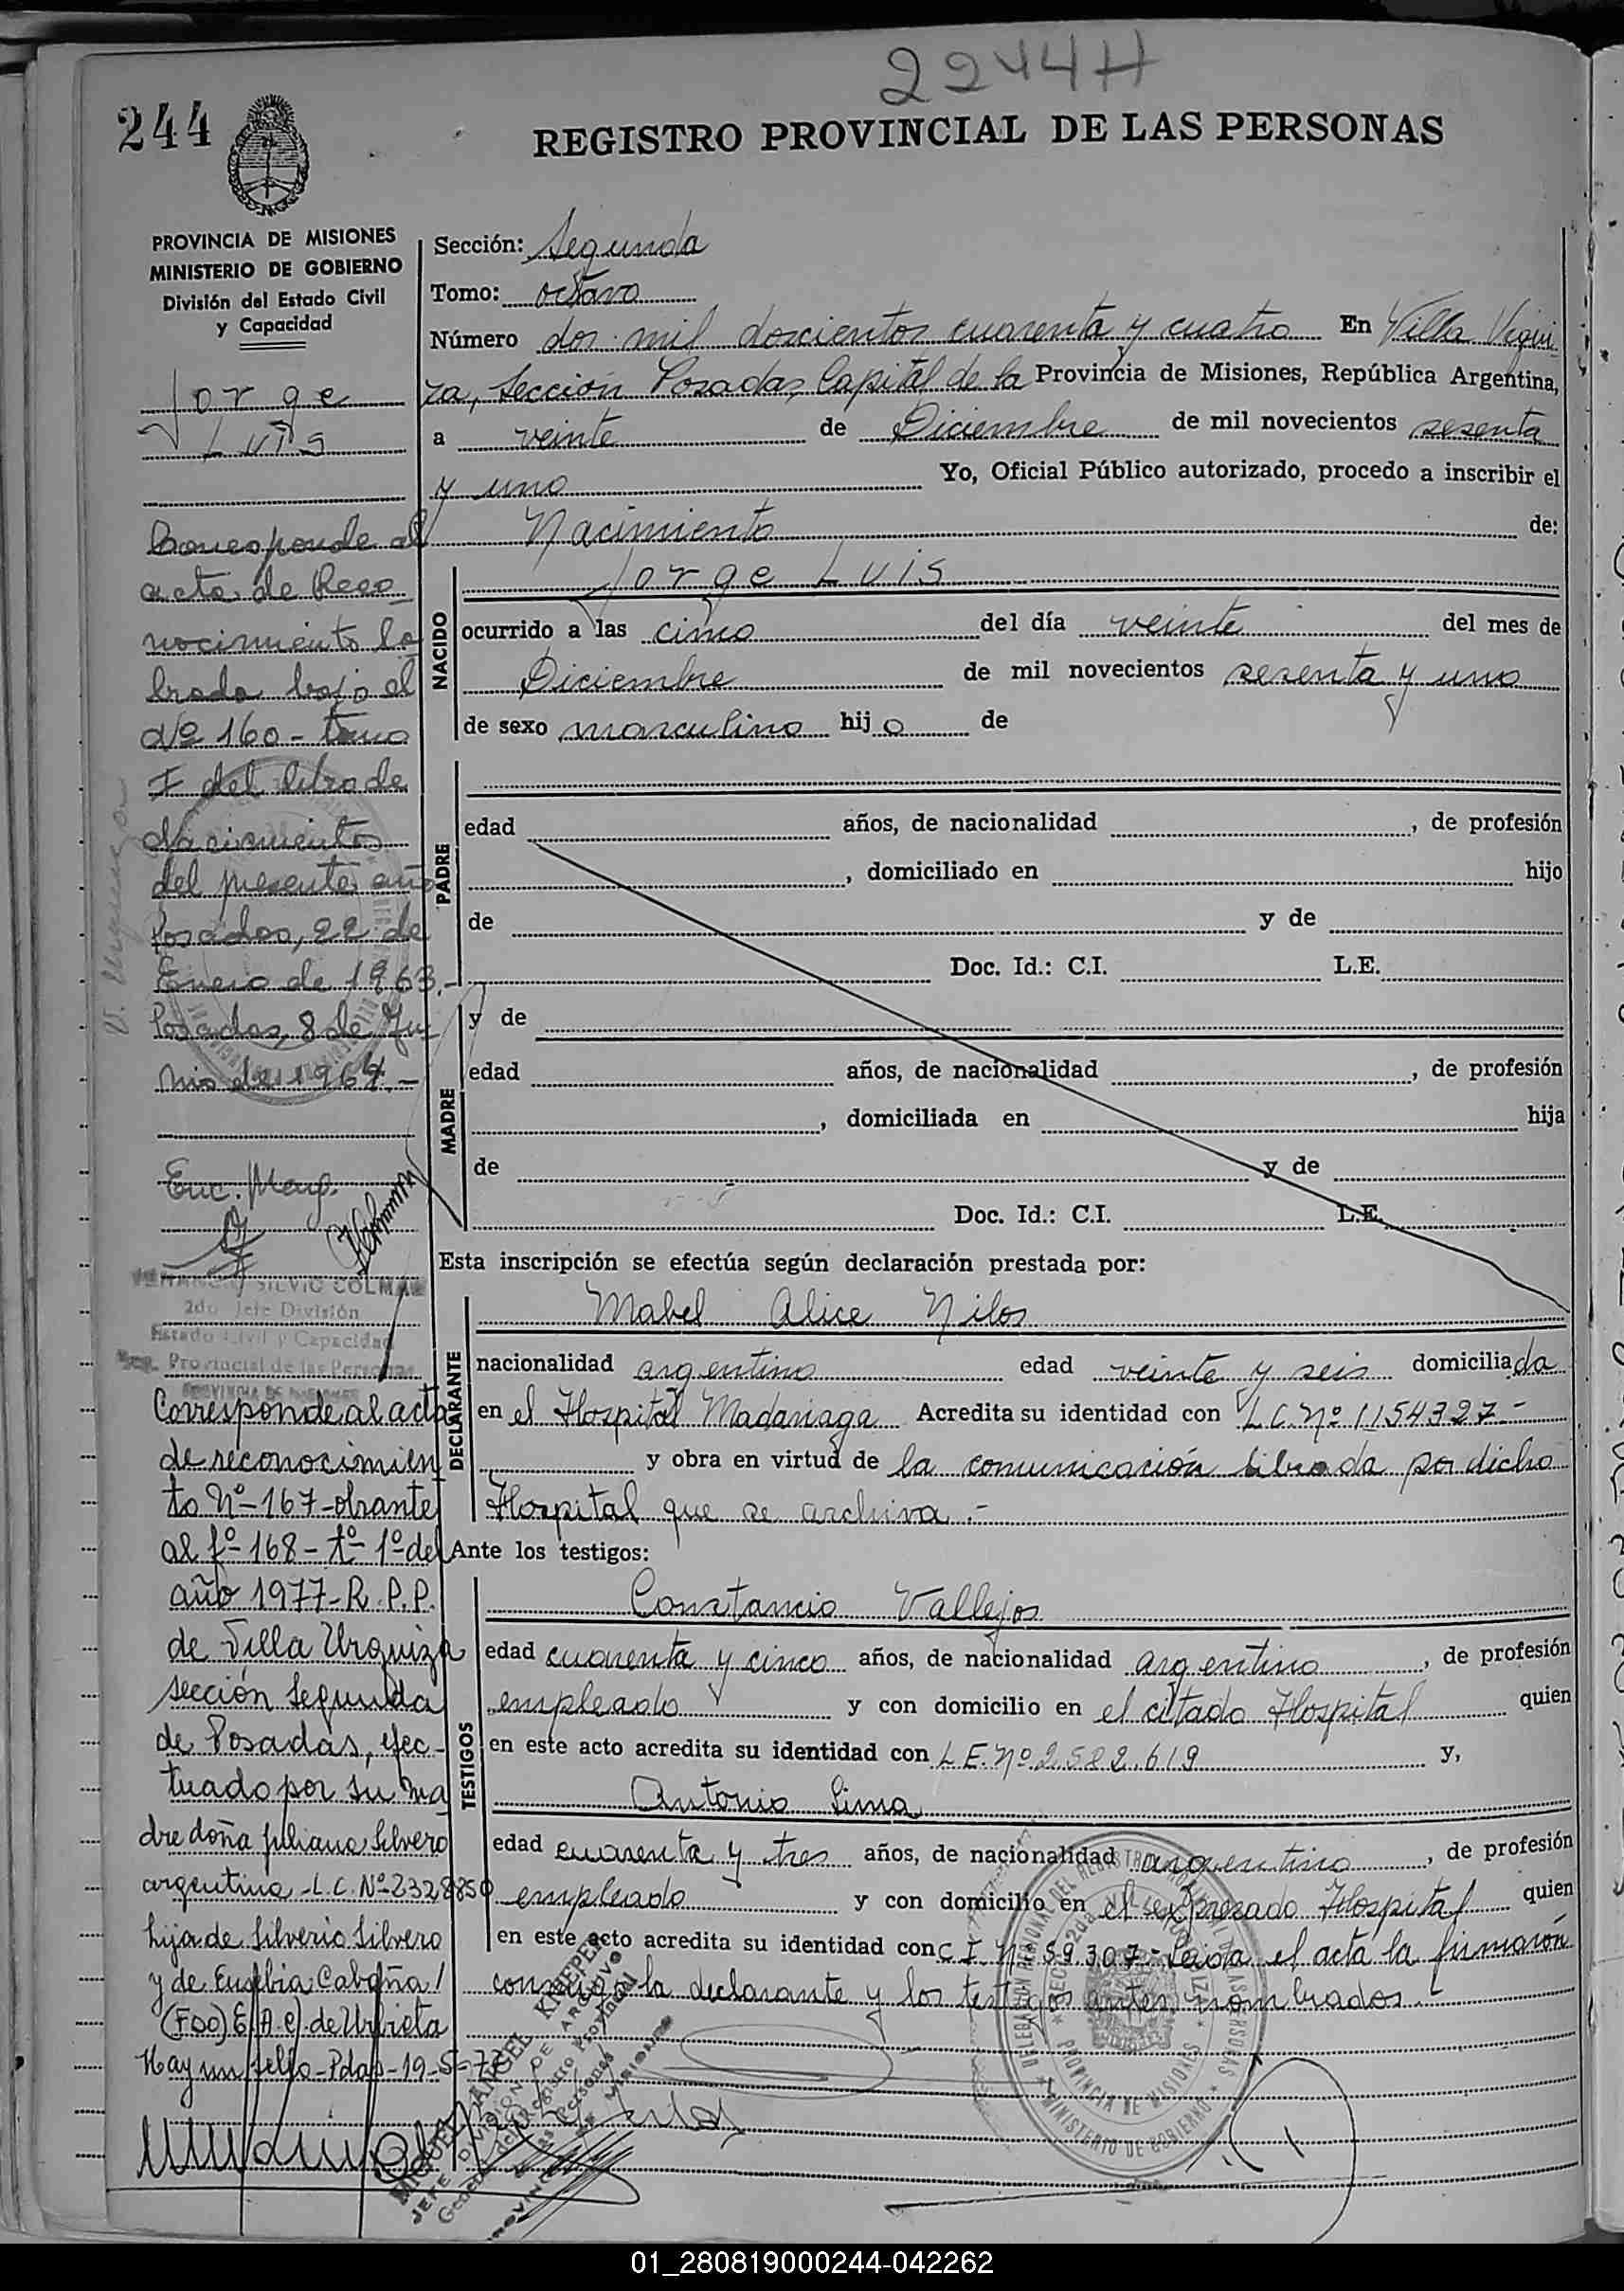 2244H
244
REGISTRO PROVINCIAL DE LAS PERSONAS
PROVINCIA DE MISIONES
MINISTERIO DE GOBIERNO
División del Estado Civil
y Capacidad
Jorge
Luis
Corresponde al
acta de Reco
nocimiento la
brada bajo el
Nº 160 - tomo
I del libro de
Nacimientos
del presente año
Posadas, 22 de
Enero de 1963.-
Posadas, 8 de Ju
nio de 1964.-
Enc. Marg.
SILVIO COLMAN
2do Jefe División
Estado Civil y Capacidad
Reg. Provincial de las Personas
PROVINCIA DE MISIONES
Corresponde al acta
de reconocimien
to Nº-167-obrante
al fº-168-tº-1º-del
año 1977-R.P.P.
de Villa Urquiza
sección segunda
de Posadas, efec-
tuado por su ma
dre doña Juliana Silvero
argentina-L.C.Nº-2328850
hija de Silverio Silvero
y de Eusebia Cabaña/
(FDO) E.A.C. de Urbieta
Hay un sello-Pdas-19-5-77
Sección: Segunda
Tomo: octavo
Número dos mil doscientos cuarenta y cuatro En Villa Vrqui
za, Sección Posadas, Capital de la Provincia de Misiones, República Argentina,
a veinte de Diciembre de mil novecientos sesenta
y uno Yo, Oficial Público autorizado, procedo a inscribir el
Nacimiento de:
NACIDO
Jorge Luis
ocurrido a las cinco del día veinte del mes de
Diciembre de mil novecientos sesenta y uno
de sexo masculino hijo de
PADRE
edad años, de nacionalidad , de profesión
, domiciliado en hijo
de y de
Doc. Id.: C.I. L.E.
MADRE
y de
edad años, de nacionalidad , de profesión
, domiciliada en hija
de y de
Doc. Id.: C.I. L.E.
Esta inscripción se efectúa según declaración prestada por:
DECLARANTE
Mabel Alice Nilos
nacionalidad argentina edad veinte y seis domiciliada
en el Hospital Madariaga Acredita su identidad con L.C.Nº 1154727-
y obra en virtud de la comunicación librada por dicho
Hospital que se archiva.-
Ante los testigos:
TESTIGOS
Constancio Vallejos
edad cuarenta y cinco años, de nacionalidad argentino, de profesión
empleado y con domicilio en el citado Hospital quien
en este acto acredita su identidad con L.E.Nº 2.582.619 y,
Antonio Lima
edad cuarenta y tres años, de nacionalidad argentino, de profesión
empleado y con domicilio en el expresado Hospital quien
en este acto acredita su identidad con C.I.Nº 59.307- Leída el acta la firmaron
conmigo la declarante y los testigos antes nombrados.-
MIGUEL ANGEL KNEPER
JEFE DIVISION DE ARCHIVO
General del Registro Provincial
de las Personas
PROVINCIA DE MISIONES
DELEGACION REGIONAL DEL REGISTRO PROVINCIAL DE LAS PERSONAS
MINISTERIO DE GOBIERNO
PROVINCIA DE MISIONES
01_280819000244-042262